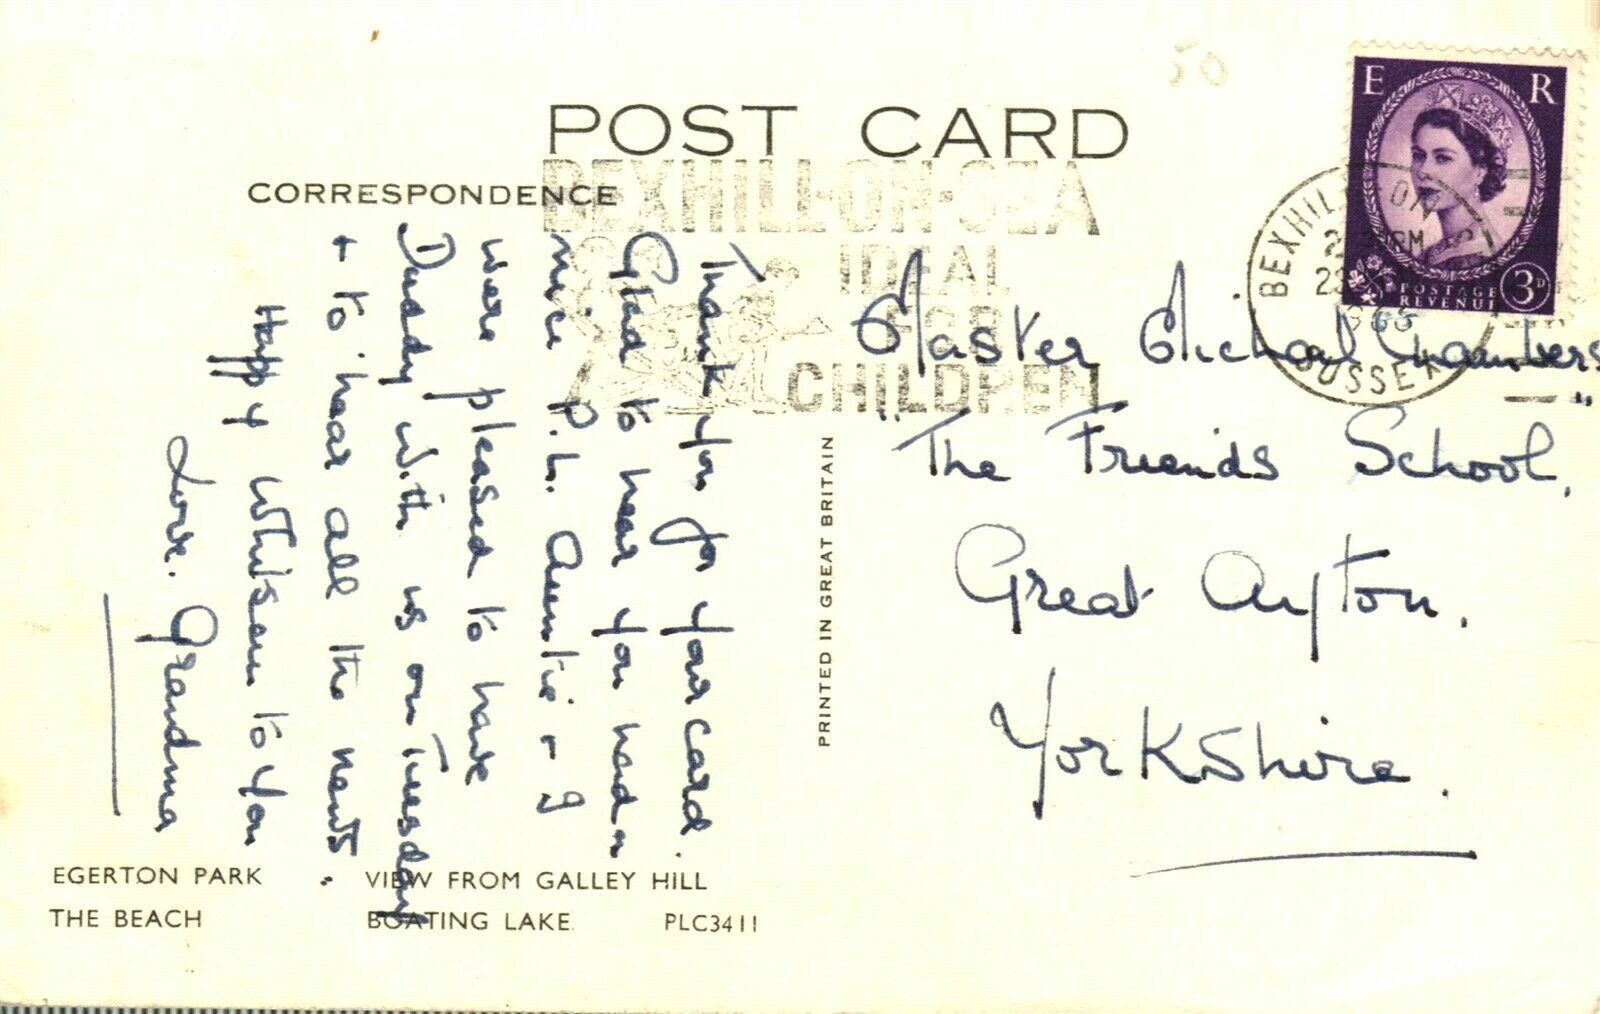 50
POST CARD
CORRESPONDENCE
BEXHILL-ON-SEA
IDEAL
FOR
CHILDREN
E R
POSTAGE
REVENUE
3D
BEXHILL-ON
PM
SUSSEX
Thank you for your card.
Glad to hear you had a
nice P.L. Auntie & I
were pleased to have
Daddy with us on Tuesday
& to hear all the news.
Happy Whitsun to you
Love. Grandma
Master Michael Chambers
"The Friends School,"
Great Ayton.
Yorkshire.
PRINTED IN GREAT BRITAIN
EGERTON PARK VIEW FROM GALLEY HILL
THE BEACH BOATING LAKE PLC3411